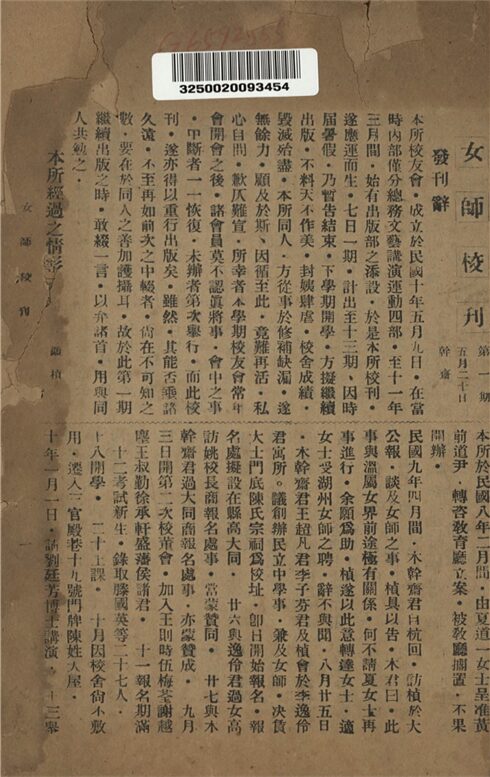 3250020093454
女師校刊
第一期
五月二十日
發刊辭
幹齋
本所校友會・成立於民國十年五月九日・在當
時內部僅分總務文藝講演運動四部・至十一年
三月間・始有出版部之添設・於是本所校刊・
遂應運而生・七日一期・計出至十三期・因時
屆暑假・乃暫告結束・下學期開學・方擬繼續
出版・不料天不作美・封姨肆虐・校舍成績・
毀滅殆盡・本所同人・方從事於修補缺漏・遂
無餘力・顧及於斯、因循至此・竟難再活・私
心自問・歉仄難宣・所幸者本學期校友會常年
會開會之後・諸會員莫不認眞將事・會中之事
・中斷者一一恢復・未辦者第次舉行・而此校
刊・遂亦得以重行出版矣・雖然・其能否垂諸
久遠・不至再如前次之中輟者・尙在不可知之
數・要在於同人之善加護攝耳・故於此第一期
繼續出版之時・敢綴一言・以弁諸首・用與同
人共勉之・
本所經過之情形
女師校刊
一
本所於民國八年二月間・由夏道一女士呈准黃
前道尹・轉咨敎育廳立案・被敎廳擱置・不果
開辦・
民國九年四月間・木幹齋君自杭回・訪楨於大
公報・談及女師之事・楨具以告・木君曰・此
事與溫屬女界前途極有關係・何不請夏女士再
事進行・余願爲助・楨遂以此意轉達女士・適
女士受湖州女師之聘・辭不與聞・八月廿五日
・木幹齋君王超凡君李子芬君及楨會於李逸伶
君寓所・議創辦民立中學事・兼及女師・決賃
大士門底陳氏宗祠爲校址・卽日開始報名・報
名處擬設在縣高大同・ 廿六與逸伶君過女高
訪姚校長商報名處事・當蒙贊同・ 廿七與木
幹齋君過大同商報名處事・亦蒙贊成・ 九月
三日開第二次校董會・加入王則時伍梅荃謝越
塵王叔勤徐承軒盛藩侯諸君・ 十一報名期滿
十二考試新生・錄取滕國英等二十七人・
十八開學・ 二十上課・ 十月因校舍尙不敷
用・遷入三官殿巷十九號門牌陳姓大屋・
十年一月一日・請劉廷芳博士講演・ 十三舉